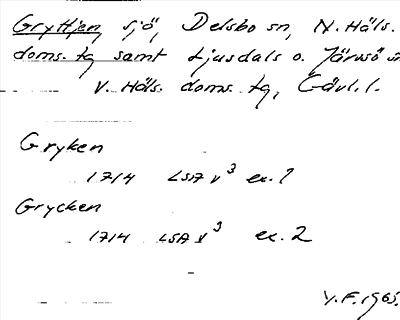 Gryttjen, sjö, Delsbo sn, N. Häls.
doms. tg samt Ljusdals o. Järvsö sn
V. Häls. doms. tg, Gävl. l.
Gryken
1714 LSA v³ ex. 1
Grycken
1714 LSA v³ ex. 2
V.F. 1965.